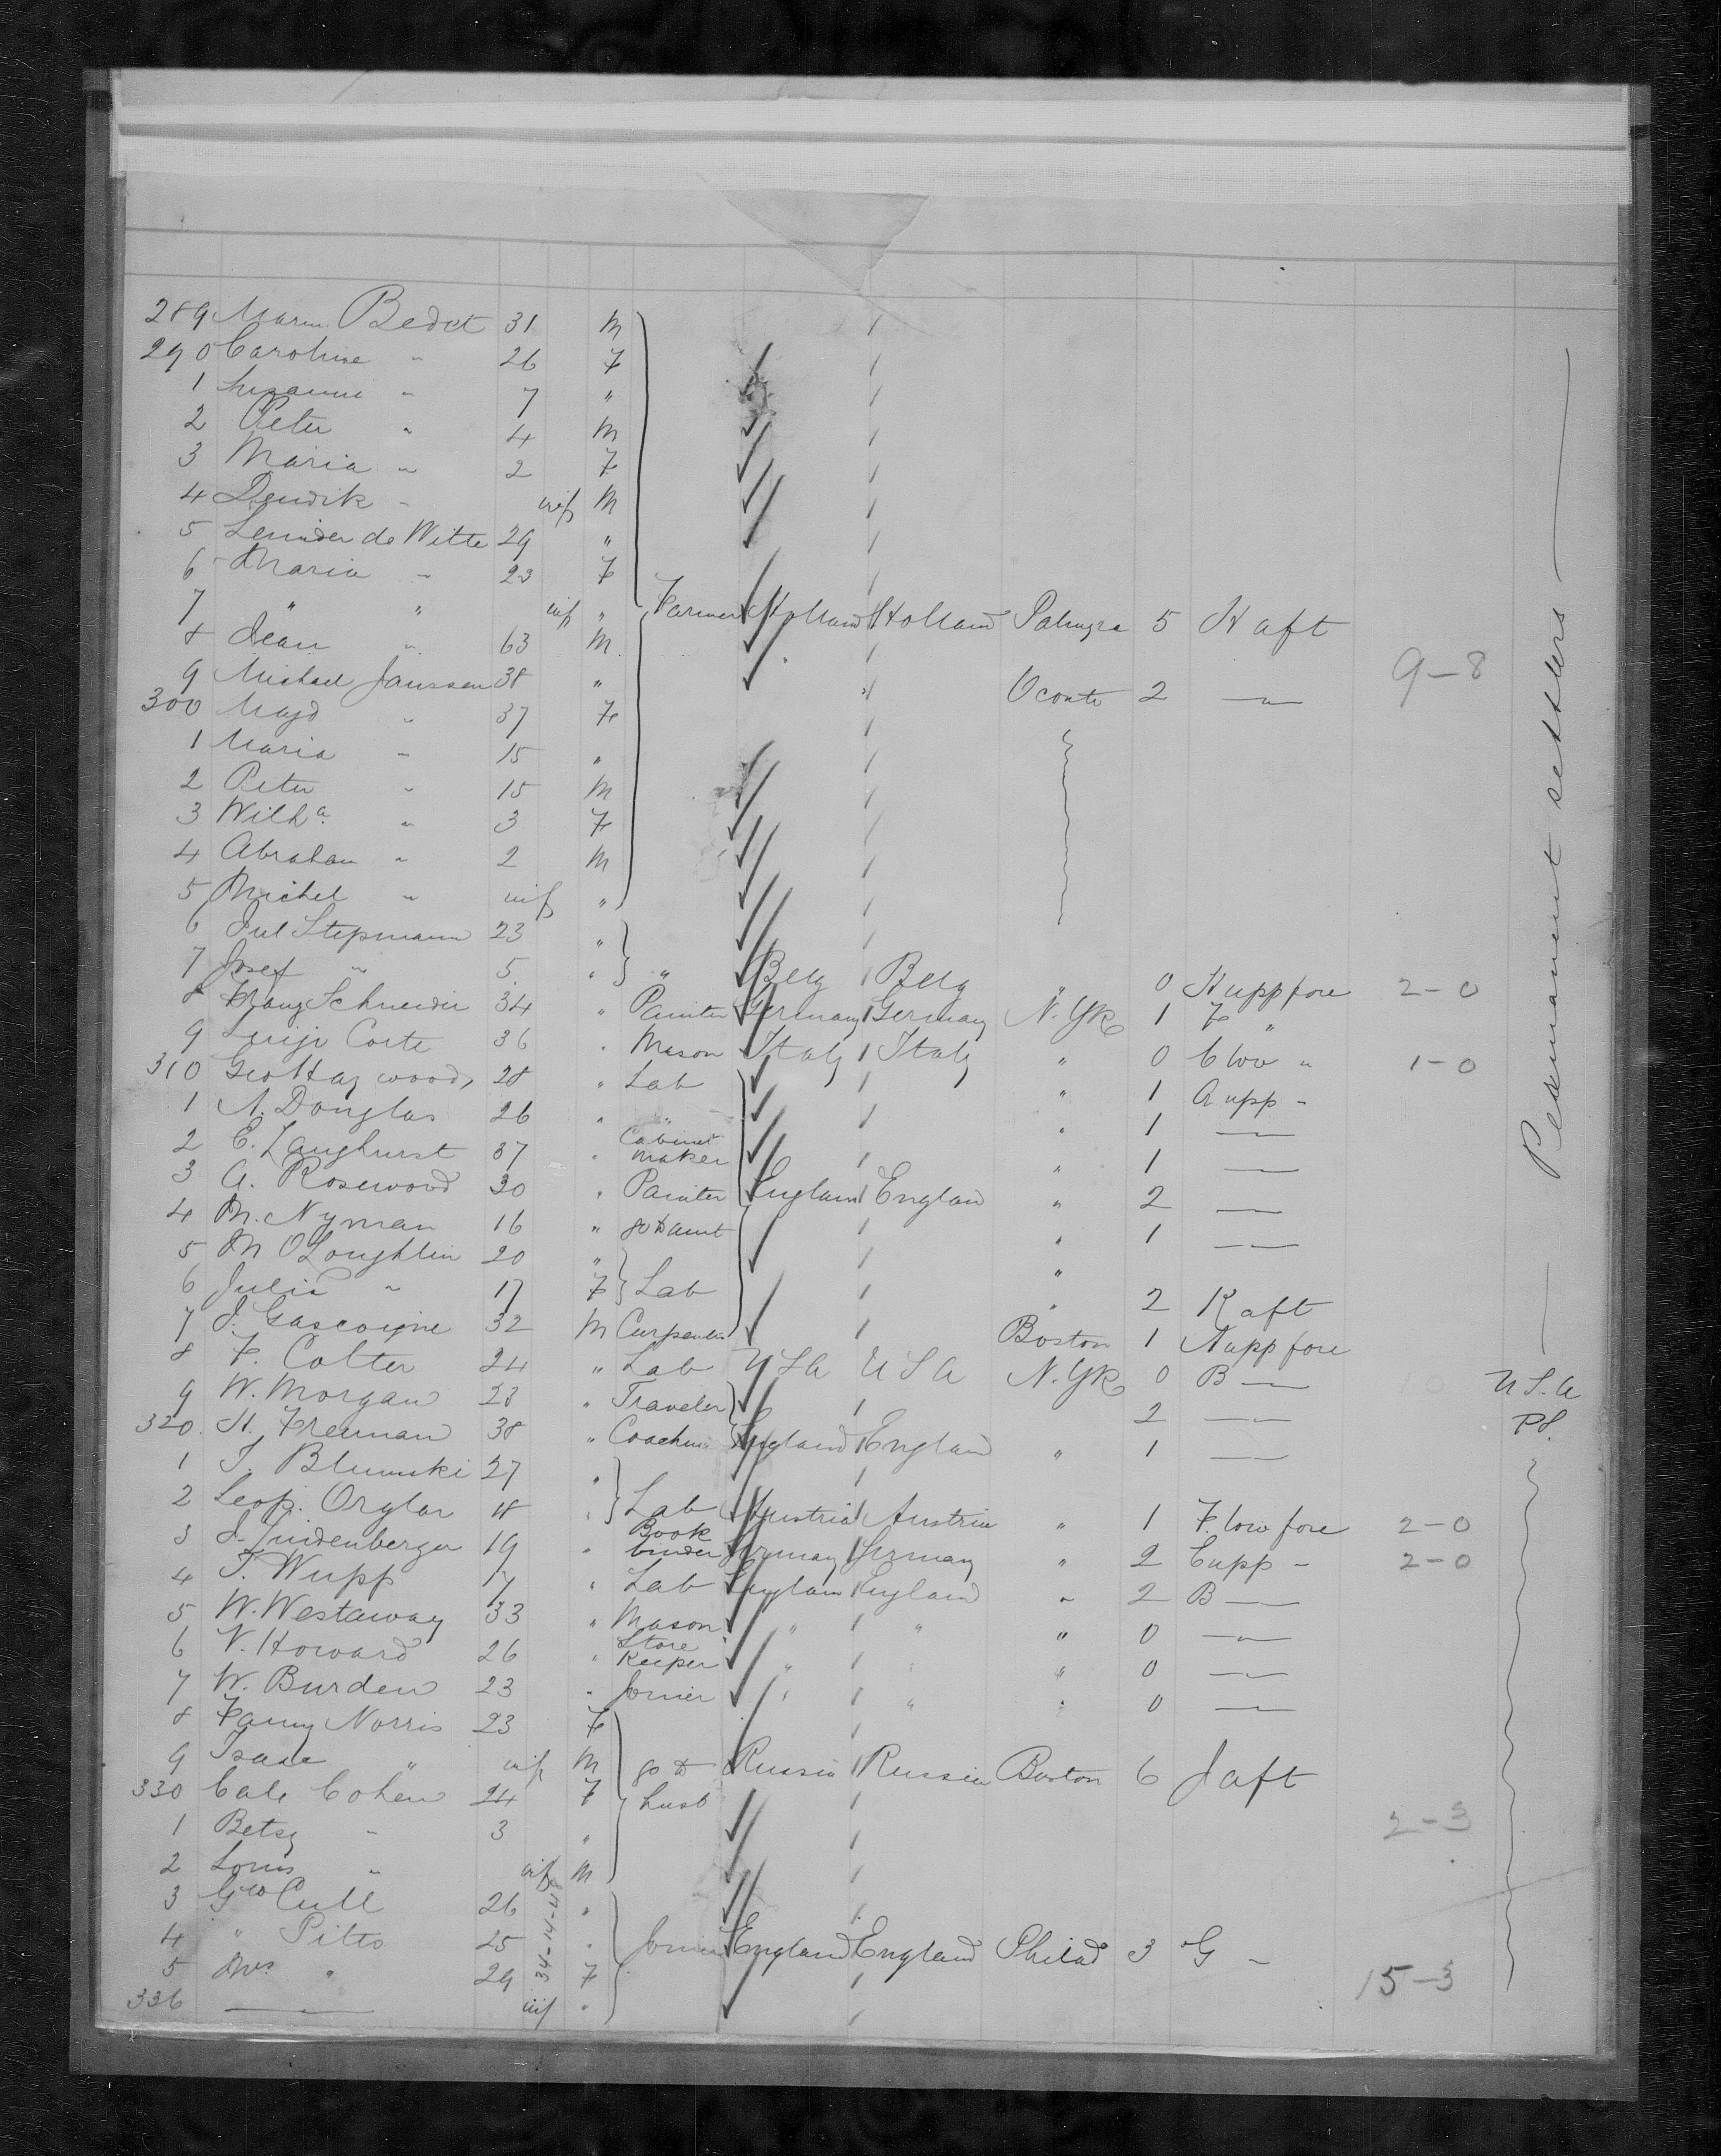 289 Marin. Bedet 31 M
290 Caroline " 26 F
1 Suzanne " 7 "
2 Peter " 4 M
3 Maria " 2 F
4 Dendrik " inf M
5 de Witte 29 "
6 Maria " 23 F
7 " " inf " Farmer Holland Holland Palmyra 5 H aft
8 Jean " 63 M
9 Michael Janssen 38 " Oconto 2 —"—
9-8
300 Magd " 37 F
1 Maria " 15 "
2 Peter " 15 M
3 Wilha " 3 F
4 Abraham " 2 M
5 Michel " inf "
6 Jul Stepmann 23 "
7 Josef " 5 " " Belg Belg " 0 H upp fore 2-0
8 Franz Schneider 34 " Painter Germany Germany N. Yk 1 F "
9 Luigi Corte 36 " Mason Italy Italy " 0 C low " 1-0
310 Geo Haywood 28 " Lab " 1 A upp "
1 A. Douglas 26 " " " 1 —"—
2 E. Langhurst 37 " Cabinet maker " 1 —"—
3 A. Rosewood 30 " Painter England England " 2 —"—
4 M. Nyman 16 " go to aunt " 1 —"—
5 M O'Loughlin 20 " "
6 Julia " 17 F Lab " 2 K aft
7 J. Gascoigne 32 M Carpenter Boston 1 A upp fore
8 F. Colter 24 " Lab U S A U S A N. Yk 0 B —"— U S. A
9 W. Morgan 23 " Traveler 2 —"— PS.
320. H. Freeman 38 " Coachm England England " 1 —"—
1 J. 27 "
2 Leop. Orglar 18 " Lab Austria Austria " 1 F. low fore 2-0
3 J. Lindenberger 19 " Book binder Germany Germany " 2 C upp " 2-0
4 T. Wupp 17 " Lab England England " 2 B —"—
5 W. Westaway 33 " Mason " " " 0 —"—
6 V. Howard 26 " Store Keeper " " " 0 —"—
7 W. Burden 23 " Joiner " " " 0 —"—
8 Fanny Norris 23 F
9 Isaac " inf M go to Russia Russia Boston 6 J aft
330 Cale Cohen 24 F husb
1 Betsy " 3 "
2-3
2 Louis " inf M
3 Geo Cull 26 "
4 " Pitts 25 " Joiner England England Philad 3 G "
5 Mrs " 29 F
15-3
336 —"— inf "
34-14-4
Permanent settlers